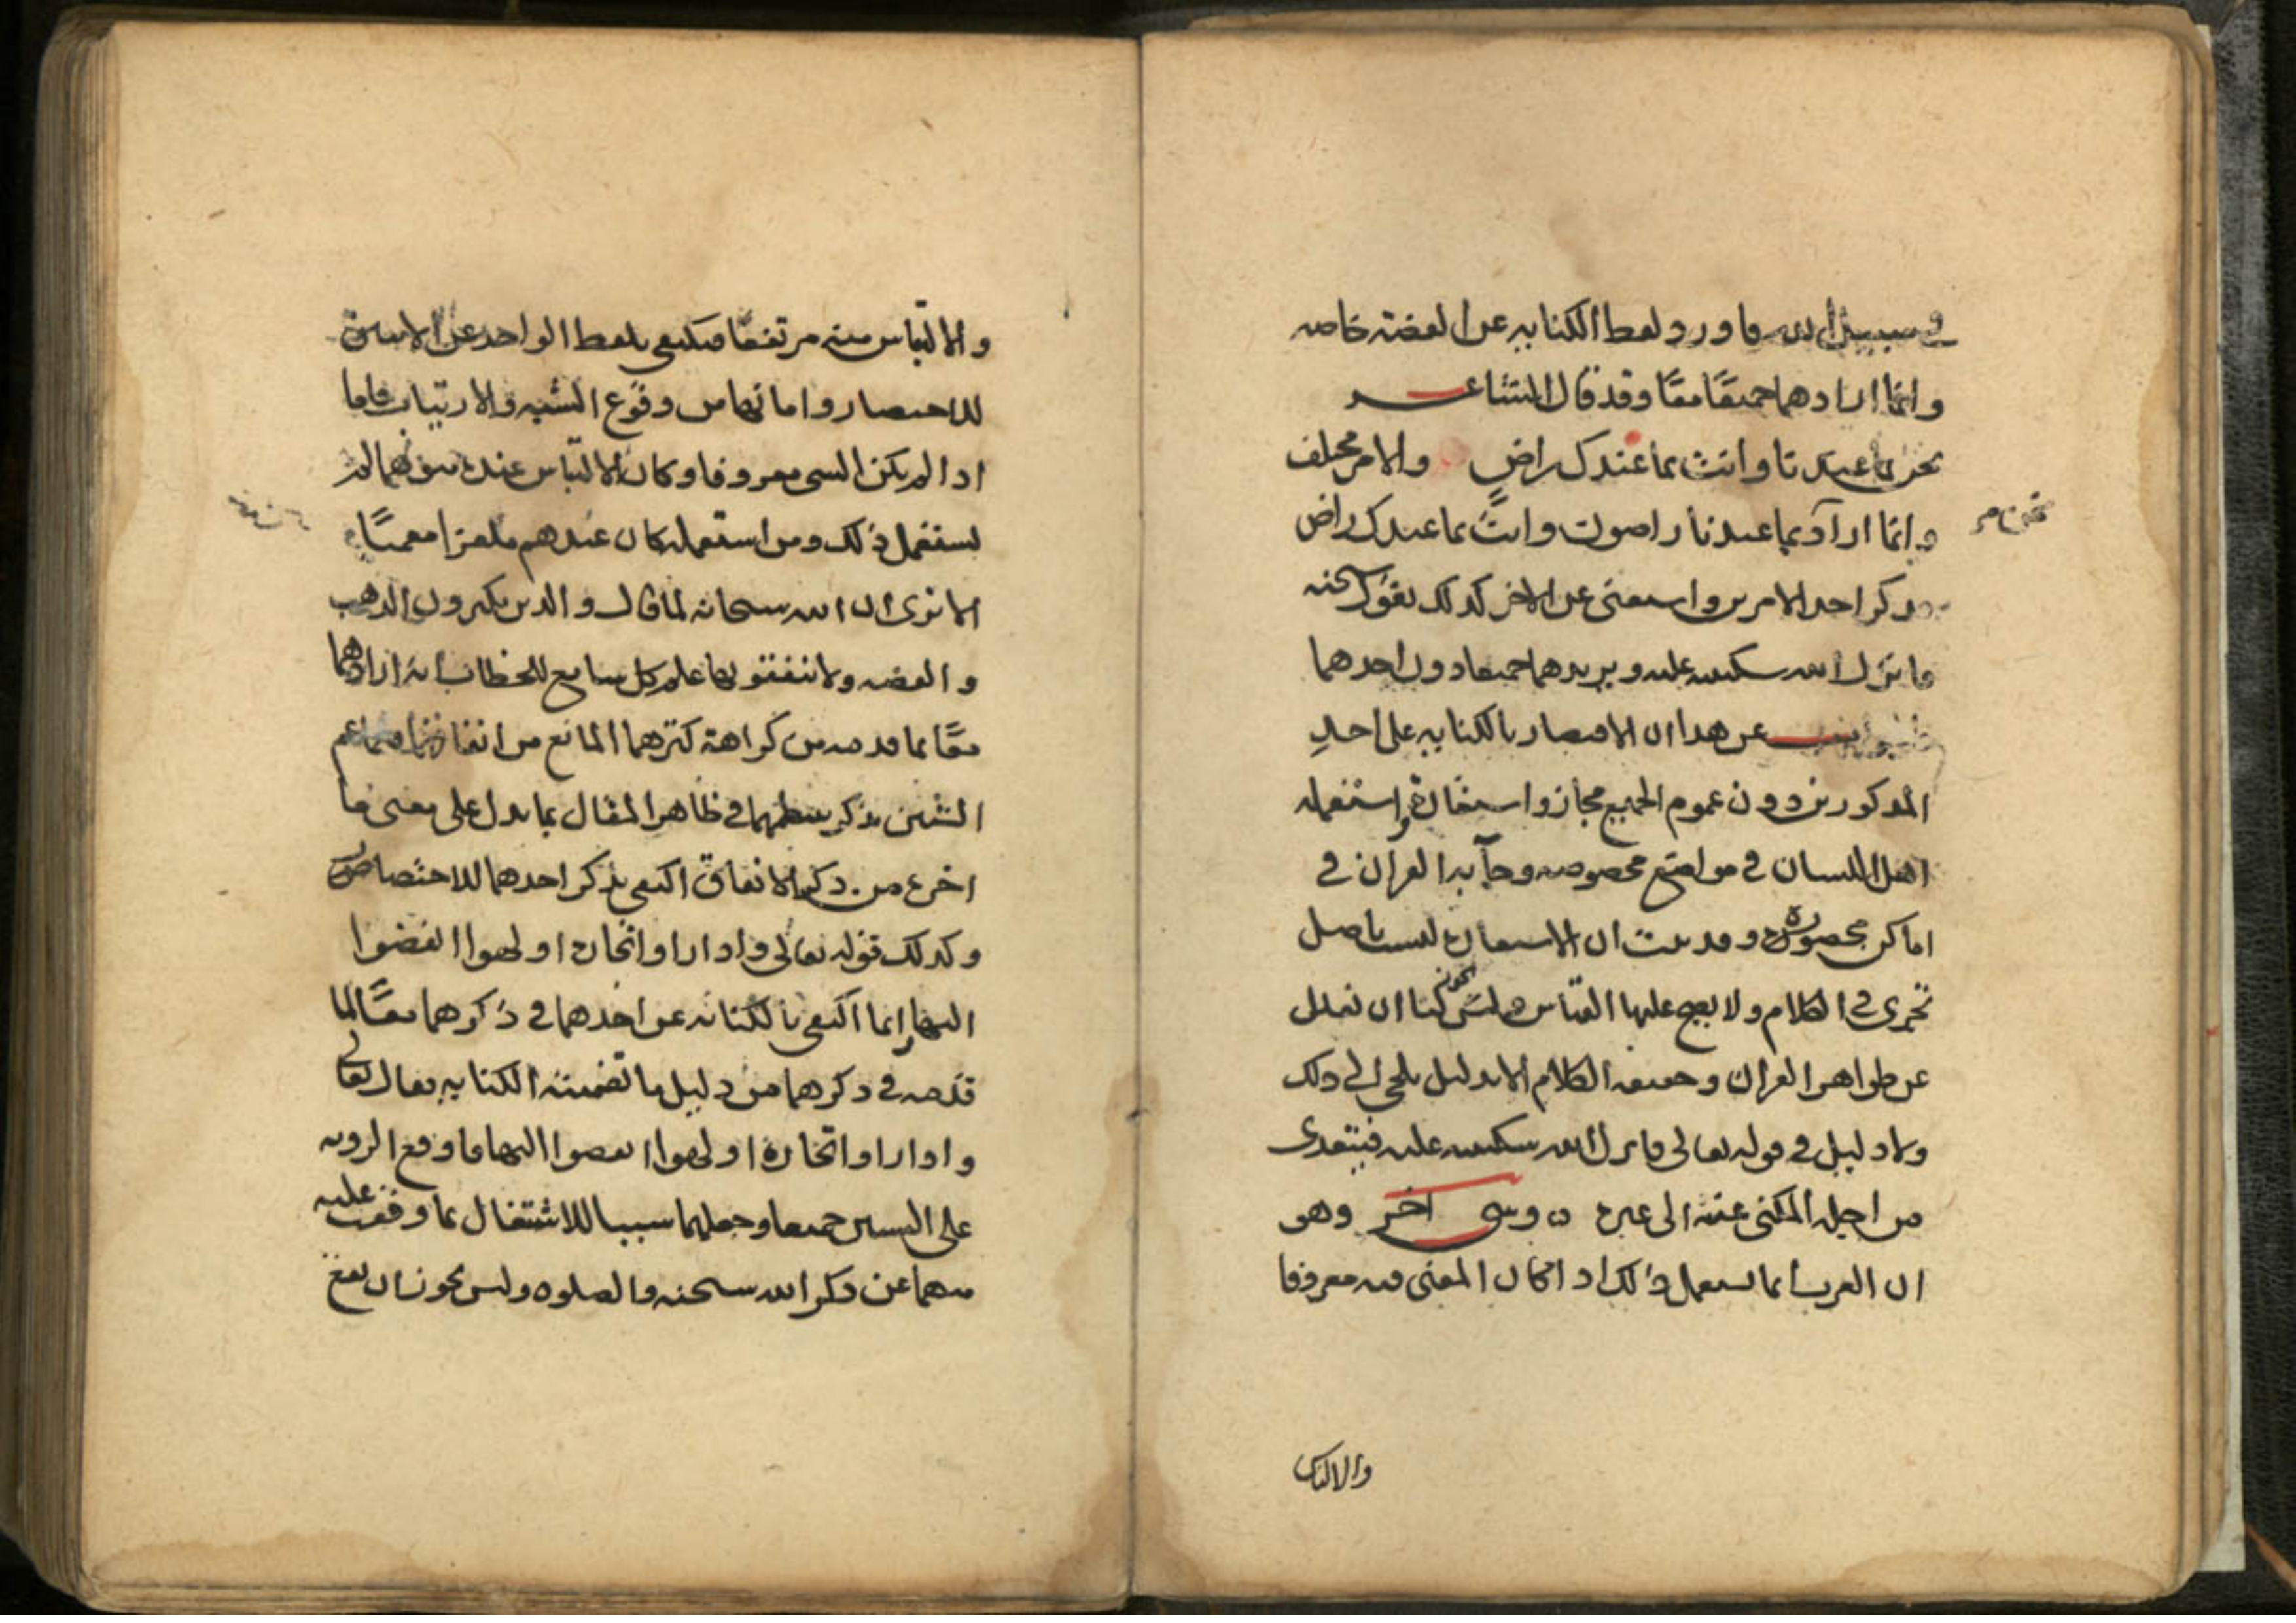 في سبيل الله فاورد لفظ الكناية عن الفضة خاصه
وانما ارادهما جميعًا معًا وقد قال الشاعر
نحن بما عندنا وانت بما عندك راضٍ والامر مختلف
وانما اراد نحن بما عندنا راضون وانت بما عندك راض
فذكر احد الامرين واستغنى عن الاخر كذلك يقول سبحنه
فانزل الله سكينته عليه ويريدهما جميعا دون احدهما
عن هذا ان الاقتصار بالكناية على احد
المذكورين دون عموم الجميع مجاز واستعارة واستعمله
اهل اللسان في مواضع مخصوصه وجآ به القران في
اماكن محصورة وقد ثبت ان الاستعارة ليست باصل
تجري في الكلام ولا يصح عليها القياس وليس يجوز لنا ان نعدل
عن ظواهر القران وحقيقه الكلام الا بدليل يلجى الى ذلك
ولا دليل في قوله تعالى فانزل الله سكينته عليه فيتعدى
من اجله المكنى عنه الى غيره ه وشى اخر وهو
ان العرب انما تستعمل ذلك اذا كان المعنى فيه معروفا
والالتباس
والالتباس منه مرتفعًا فيكتفي بلفظ الواحد عن الاثنين
للاختصار واما نهما من وقوع الشبه والارتياب فاما
اذا لم يكن الشى معروفا وكان الالتباس عند متوهما لم
يستعمل ذلك ومن استعمله كان عندهم ملغزا معميًا
الا ترى ان الله سبحانه لما قال والذين يكنزون الذهب
والفضه ولا ينفقونها علم كل سامع للخطاب انه ارادهما
معًا بما قدمه من كراهة كنزهما المانع من انفاقهما فلما عم
الشيئين بذكر ينتظمهما في ظاهر المقال بما يدل على معنى ما
اخره من ذكر الانفاق اكتفى بذكر احدهما للاختصاص
وكذلك قوله تعالى واذا راوا تجارة او لهوا انفضوا
اليها وانما اكتفى بالكناية عن احدهما في ذكرهما معًا لما
قدمه في ذكرهما من دليل ما تضمنته الكناية فقال تعالى
واذا راوا تجارة او لهوا انفضوا اليها فاوقع الرويه
على الشيئين جميعا وجعلهما سببا للاشتغال بما وقعت عليه
منهما عن ذكر الله سبحنه والصلوه وليس يجوز ان يقع